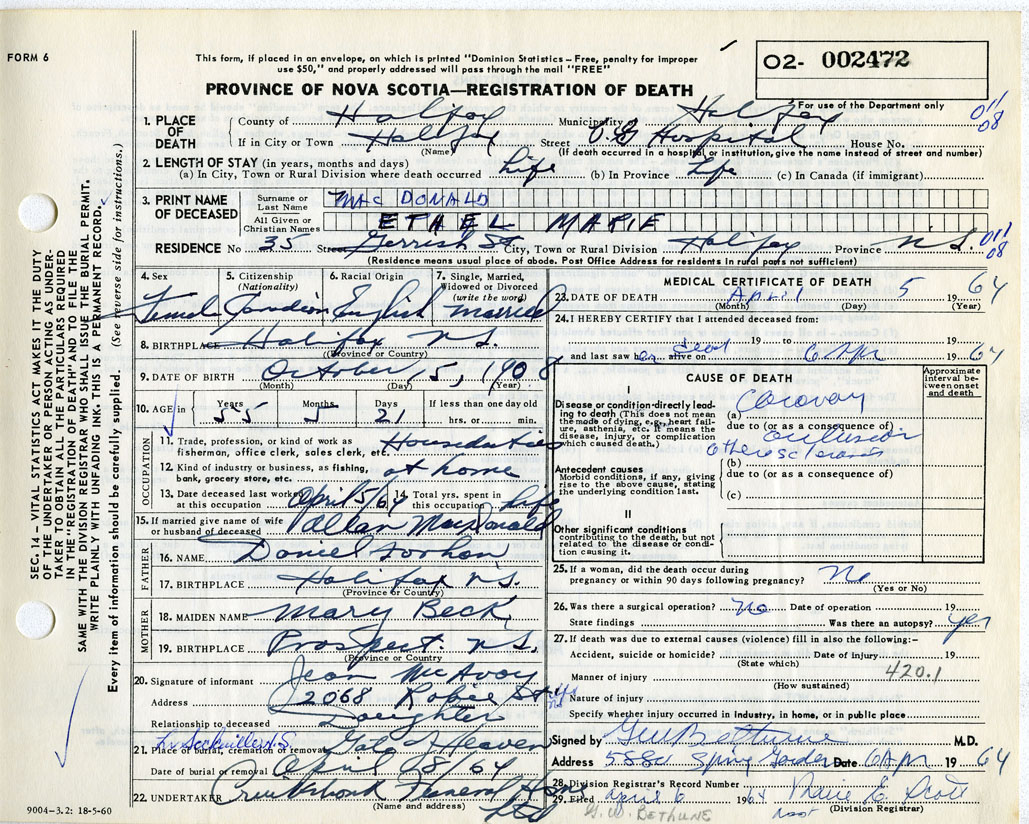 FORM 6
This form, if placed in an envelope, on which is printed "Dominion Statistics – Free, penalty for improper
use $50," and properly addressed will pass through the mail "FREE"
O2- 002472
PROVINCE OF NOVA SCOTIA—REGISTRATION OF DEATH
For use of the Department only
011
08
1. PLACE OF DEATH
County of Halifax Municipality Halifax
If in City or Town Halifax Street V.G. Hospital House No.
(Name) (If death occurred in a hospital or institution, give the name instead of street and number)
2. LENGTH OF STAY (in years, months and days)
(a) In City, Town or Rural Division where death occurred Life (b) In Province Life (c) In Canada (if immigrant)
3. PRINT NAME OF DECEASED
Surname or Last Name MAC DONALD
All Given or Christian Names ETHEL MARIE
RESIDENCE No 35 Street Gerrish St City, Town or Rural Division Halifax Province N.S. 011 08
(Residence means usual place of abode. Post Office Address for residents in rural parts not sufficient)
4. Sex 5. Citizenship (Nationality) 6. Racial Origin 7. Single, Married, Widowed or Divorced (write the word)
Female Canadian English Married
8. BIRTHPLACE Halifax N.S.
(Province or Country)
9. DATE OF BIRTH October 15, 1908
(Month) (Day) (Year)
10. AGE in Years Months Days If less than one day old
55 5 21 hrs. or min.
OCCUPATION
11. Trade, profession, or kind of work as fisherman, office clerk, sales clerk, etc. Houseduties
12. Kind of industry or business, as fishing, bank, grocery store, etc. at home
13. Date deceased last worked at this occupation April 5/64 14. Total yrs. spent in this occupation Life
15. If married give name of wife or husband of deceased Allan MacDonald
FATHER
16. NAME Daniel
17. BIRTHPLACE Halifax N.S.
(Province or Country)
MOTHER
18. MAIDEN NAME Mary Beck
19. BIRTHPLACE Prospect N.S.
(Province or Country
20. Signature of informant Jean McAvoy
Address 2068 Robie St
Relationship to deceased Daughter
Lr. Sackville N.S.
21. Place of burial, cremation or removal Gate of Heaven
Date of burial or removal April 8/64
22. UNDERTAKER Cruikshank Funeral Home Ltd
(Name and address)
MEDICAL CERTIFICATE OF DEATH
23. DATE OF DEATH April 5 1964
(Month) (Day) (Year)
24. I HEREBY CERTIFY that I attended deceased from:
19 to 19
and last saw her alive on dead 6 Apr 1964
CAUSE OF DEATH
Approximate interval between onset and death
I
Disease or condition directly leading to death (This does not mean the mode of dying, e.g., heart failure, asthenia, etc. It means the disease, injury, or complication which caused death.)
(a) Coronary
due to (or as a consequence of) occlusion
Antecedent causes
Morbid conditions, if any, giving rise to the above cause, stating the underlying condition last.
(b) atherosclerosis
due to (or as a consequence of)
(c)
II
Other significant conditions contributing to the death, but not related to the disease or condition causing it.
25. If a woman, did the death occur during pregnancy or within 90 days following pregnancy? No
(Yes or No)
26. Was there a surgical operation? No Date of operation 19
State findings Was there an autopsy? yes
27. If death was due to external causes (violence) fill in also the following:–
Accident, suicide or homicide? Date of injury 19
(State which)
Manner of injury 420.1
(How sustained)
Nature of injury
Specify whether injury occurred in industry, in home, or in public place.
Signed by G W Bethune M.D.
Address 5880 Spring Garden Date 6 Apr 1964
28. Division Registrar's Record Number
29. Filed April 6 1964 Marie E. Scott
(Division Registrar)
G. W. BETHUNE asst
SEC. 14 – VITAL STATISTICS ACT MAKES IT THE DUTY
OF THE UNDERTAKER OR PERSON ACTING AS UNDER-
TAKER TO OBTAIN ALL THE PARTICULARS REQUIRED
IN THE "REGISTRATION OF DEATH" AND TO FILE THE
SAME WITH THE DIVISION REGISTRAR WHO SHALL ISSUE THE BURIAL PERMIT.
WRITE PLAINLY WITH UNFADING INK. THIS IS A PERMANENT RECORD.
Every item of information should be carefully supplied. (See reverse side for instructions.)
9004-3.2: 18-5-60